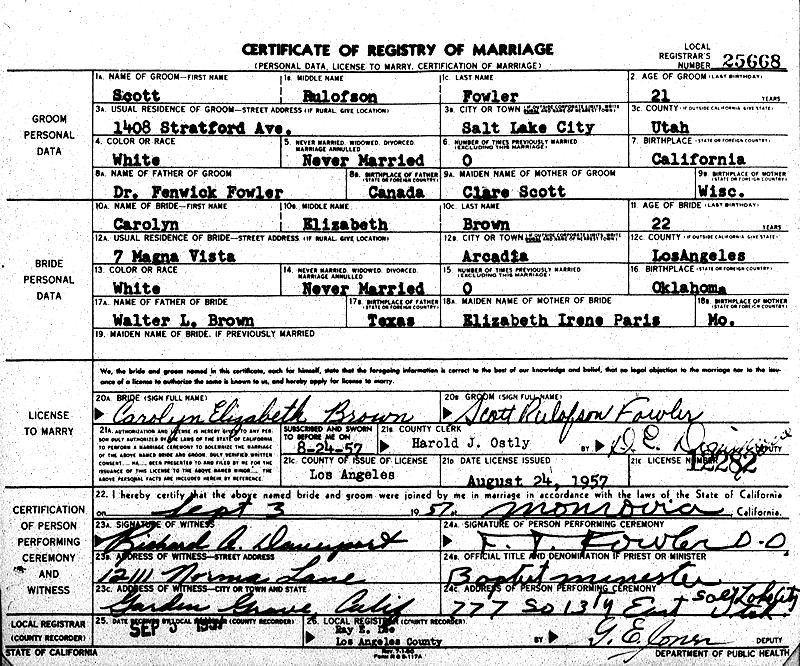 CERTIFICATE OF REGISTRY OF MARRIAGE
(PERSONAL DATA, LICENSE TO MARRY, CERTIFICATION OF MARRIAGE)
LOCAL REGISTRAR'S NUMBER 25668
GROOM PERSONAL DATA
1A. NAME OF GROOM—FIRST NAME 1B. MIDDLE NAME 1C. LAST NAME 2. AGE OF GROOM (LAST BIRTHDAY)
Scott Rulofson Fowler 21 YEARS
3A. USUAL RESIDENCE OF GROOM—STREET ADDRESS (IF RURAL, GIVE LOCATION) 3B. CITY OR TOWN 3C. COUNTY (IF OUTSIDE CALIFORNIA GIVE STATE)
1408 Stratford Ave. Salt Lake City Utah
4. COLOR OR RACE 5. NEVER MARRIED, WIDOWED, DIVORCED, MARRIAGE ANNULLED 6. NUMBER OF TIMES PREVIOUSLY MARRIED (EXCLUDING THIS MARRIAGE) 7. BIRTHPLACE (STATE OR FOREIGN COUNTRY)
White Never Married 0 California
8A. NAME OF FATHER OF GROOM 8B. BIRTHPLACE OF FATHER (STATE OR FOREIGN COUNTRY) 9A. MAIDEN NAME OF MOTHER OF GROOM 9B. BIRTHPLACE OF MOTHER (STATE OR FOREIGN COUNTRY)
Dr. Fenwick Fowler Canada Clare Scott Wisc.
BRIDE PERSONAL DATA
10A. NAME OF BRIDE—FIRST NAME 10B. MIDDLE NAME 10C. LAST NAME 11. AGE OF BRIDE (LAST BIRTHDAY)
Carolyn Elizabeth Brown 22 YEARS
12A. USUAL RESIDENCE OF BRIDE—STREET ADDRESS (IF RURAL, GIVE LOCATION) 12B. CITY OR TOWN 12C. COUNTY (IF OUTSIDE CALIFORNIA GIVE STATE)
7 Magna Vista Arcadia LosAngeles
13. COLOR OR RACE 14. NEVER MARRIED, WIDOWED, DIVORCED, MARRIAGE ANNULLED 15 NUMBER OF TIMES PREVIOUSLY MARRIED (EXCLUDING THIS MARRIAGE) 16. BIRTHPLACE (STATE OR FOREIGN COUNTRY)
White Never Married 0 Oklahoma
17A. NAME OF FATHER OF BRIDE 17B. BIRTHPLACE OF FATHER (STATE OR FOREIGN COUNTRY) 18A. MAIDEN NAME OF MOTHER OF BRIDE 18B. BIRTHPLACE OF MOTHER (STATE OR FOREIGN COUNTRY)
Walter L. Brown Texas Elizabeth Irene Paris Mo.
19. MAIDEN NAME OF BRIDE, IF PREVIOUSLY MARRIED
LICENSE TO MARRY
We, the bride and groom named in this certificate, each for himself, state that the foregoing information is correct to the best of our knowledge and belief, that no legal objection to the marriage nor to the issu-
ance of a license to authorize the same is known to us, and hereby apply for license to marry.
20A. BRIDE (SIGN FULL NAME) 20B. GROOM (SIGN FULL NAME)
Carolyn Elizabeth Brown Scott Rulofson Fowler
21A. AUTHORIZATION AND LICENSE IS HEREBY GIVEN TO ANY PER-
SON DULY AUTHORIZED BY THE LAWS OF THE STATE OF CALIFORNIA
TO PERFORM A MARRIAGE CEREMONY TO SOLEMNIZE THE MARRIAGE
OF THE ABOVE NAMED BRIDE AND GROOM. DULY VERIFIED WRITTEN
CONSENT BEEN PRESENTED TO AND FILED BY ME FOR THE
ISSUANCE OF THIS LICENSE TO THE ABOVE NAMED THE
ABOVE PERSONAL FACTS ARE INCLUDED HEREIN BY REFERENCE.
SUBSCRIBED AND SWORN TO BEFORE ME ON
8-24-57
21B COUNTY CLERK
Harold J. Ostly BY DEPUTY
21C. COUNTY OF ISSUE OF LICENSE 21D DATE LICENSE ISSUED 21E LICENSE NUMBER
Los Angeles August 24, 1957 12282
CERTIFICATION OF PERSON PERFORMING CEREMONY AND WITNESS
22. I hereby certify that the above named bride and groom were joined by me in marriage in accordance with the laws of the State of California
on Sept 3 1957 at Monrovia, California.
23A. SIGNATURE OF WITNESS 24A. SIGNATURE OF PERSON PERFORMING CEREMONY
Richard A. Davenport F. F. Fowler D.D
23B. ADDRESS OF WITNESS—STREET ADDRESS 24B. OFFICIAL TITLE AND DENOMINATION IF PRIEST OR MINISTER
12111 Norma Lane Baptist minester
23C. ADDRESS OF WITNESS—CITY OR TOWN AND STATE 24C. ADDRESS OF PERSON PERFORMING CEREMONY
Garden Grove, Calif 777 So 13th East Salt Lake City Utah
LOCAL REGISTRAR (COUNTY RECORDER)
25. DATE RECEIVED BY LOCAL REGISTRAR (COUNTY RECORDER) 26. LOCAL REGISTRAR (COUNTY RECORDER)
SEP 3 1957 Ray E. Lee
Los Angeles County BY G. E. Jones DEPUTY
STATE OF CALIFORNIA DEPARTMENT OF PUBLIC HEALTH